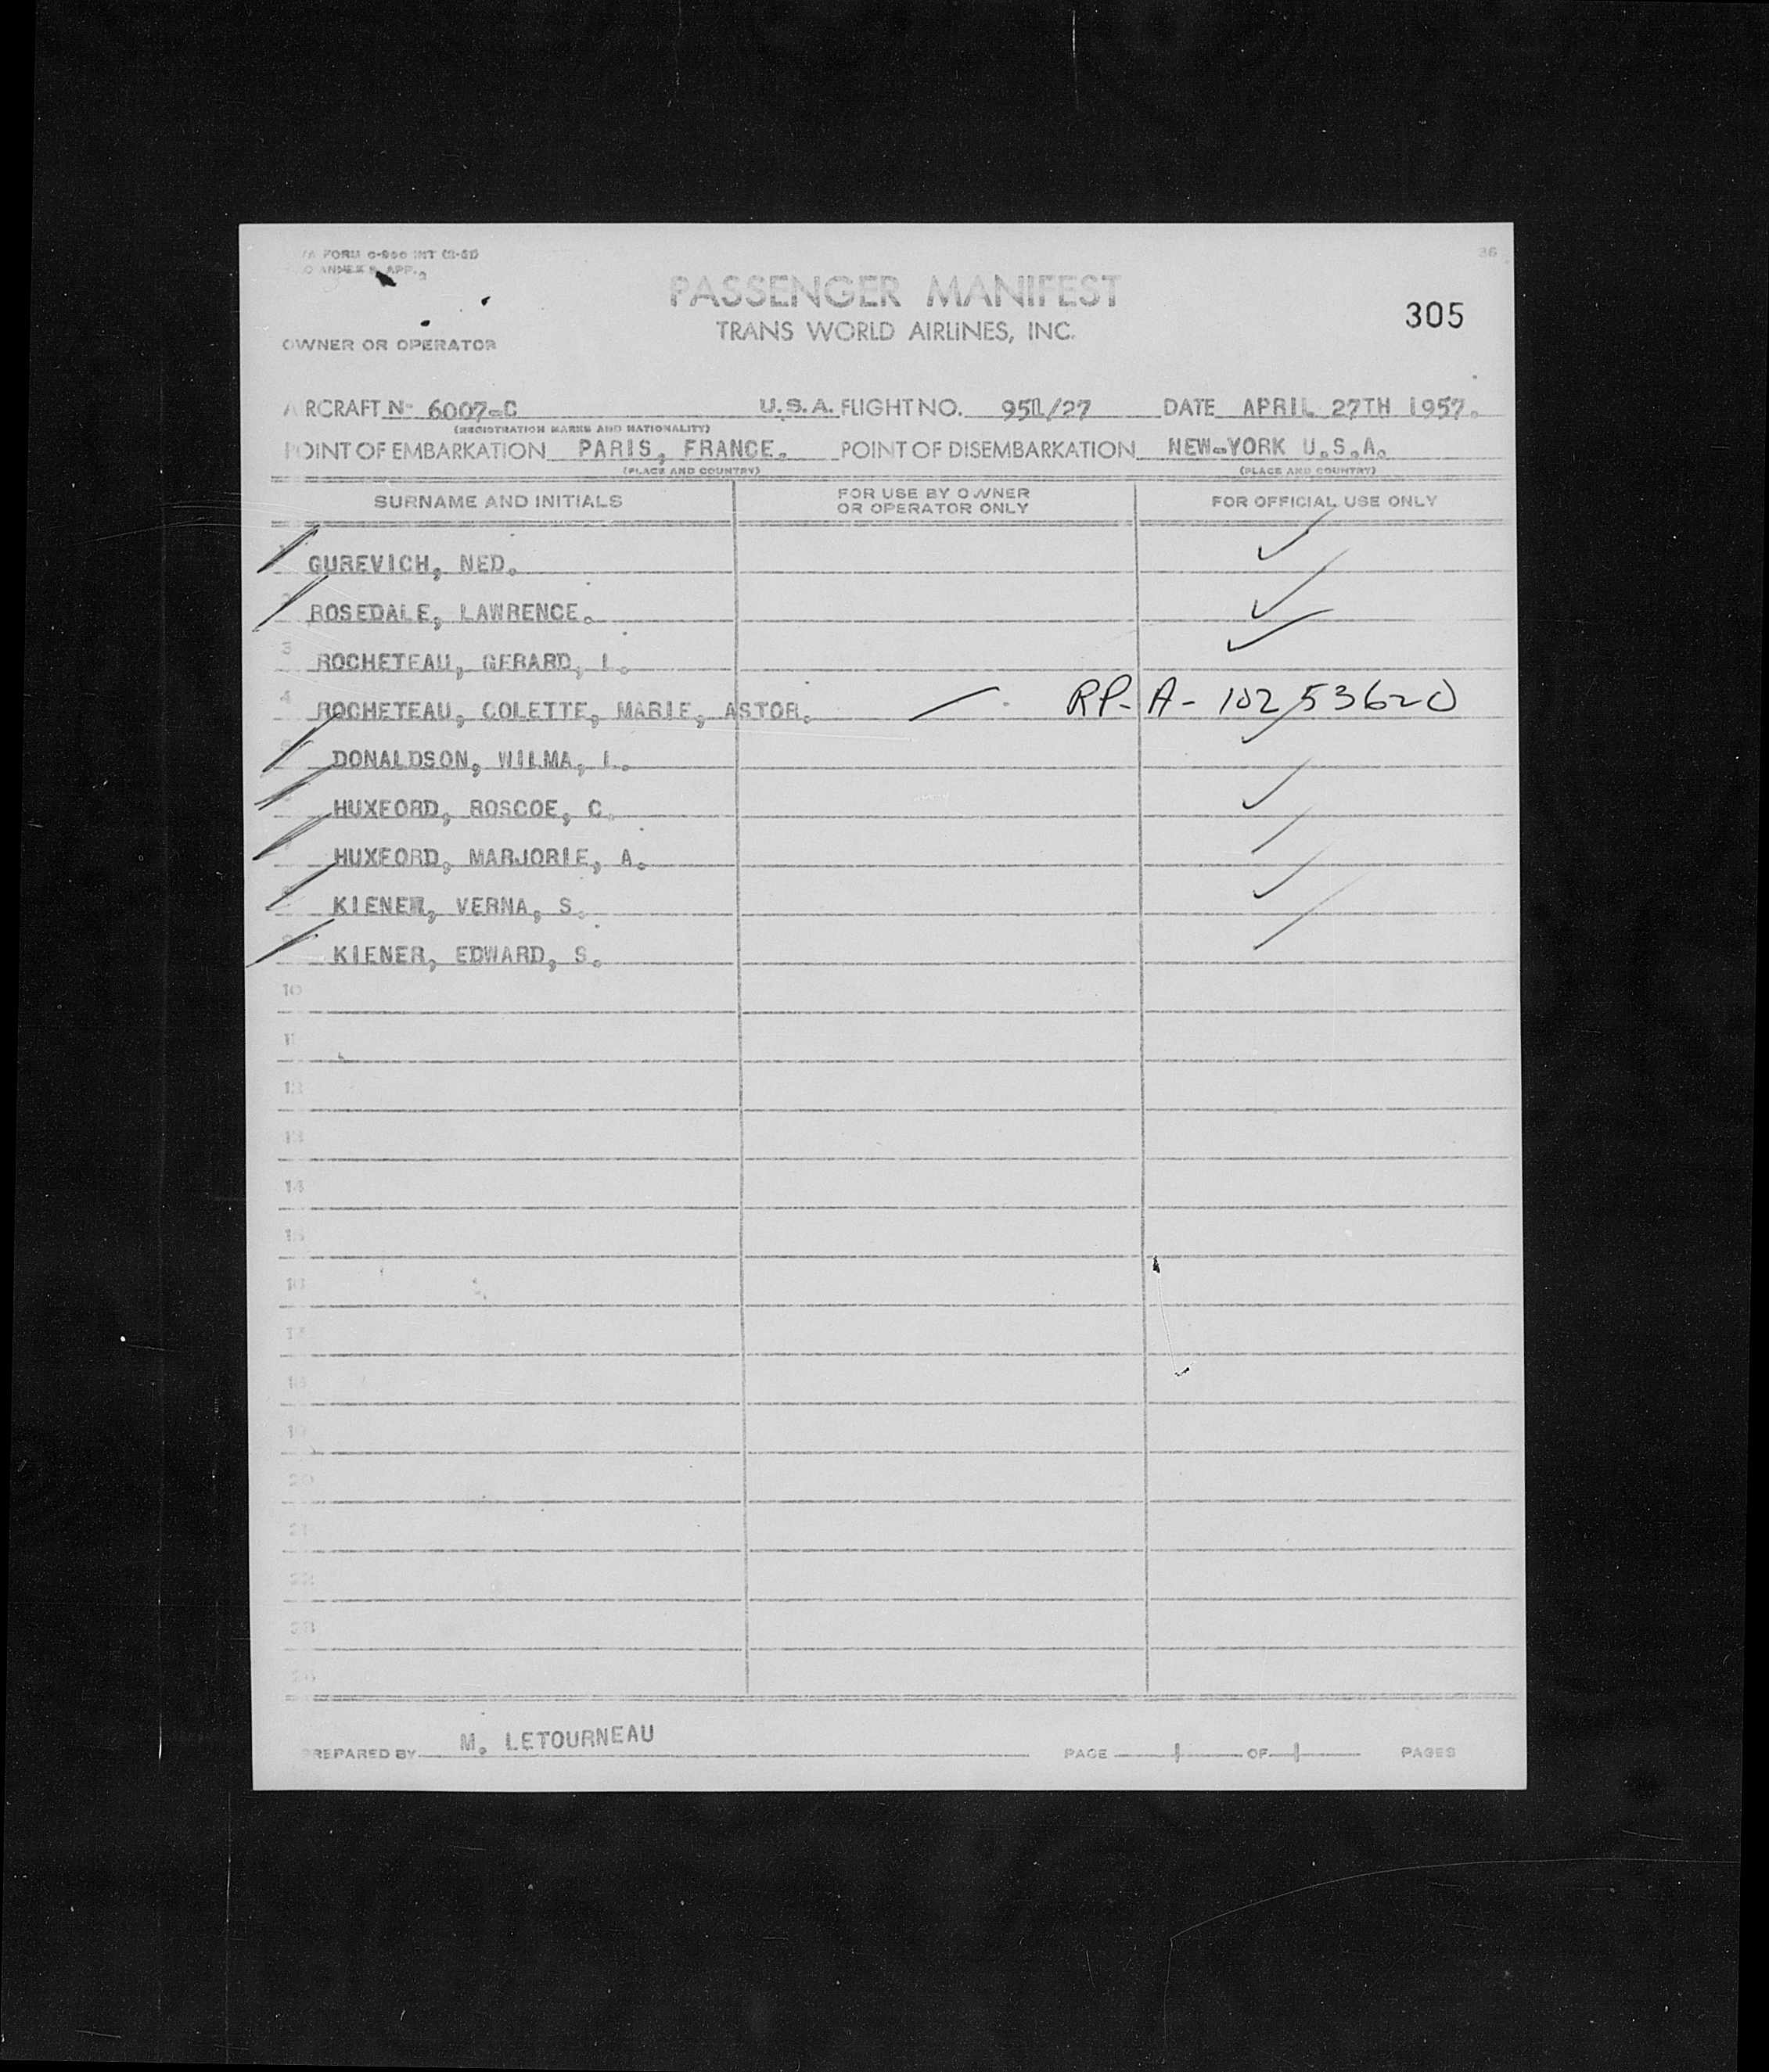 FORM 0-900 INT (11-51)
ANNEX 9, APP. 2
36
PASSENGER MANIFEST
305
TRANS WORLD AIRLINES, INC.
OWNER OR OPERATOR
AIRCRAFT No 6007-C U.S.A. FLIGHT NO. 951/27 DATE APRIL 27TH 1957.
(REGISTRATION MARKS AND NATIONALITY)
POINT OF EMBARKATION PARIS, FRANCE. POINT OF DISEMBARKATION NEW-YORK U.S.A.
(PLACE AND COUNTRY) (PLACE AND COUNTRY)
SURNAME AND INITIALS FOR USE BY OWNER OR OPERATOR ONLY FOR OFFICIAL USE ONLY
GUREVICH, NED. ✓
ROSEDALE, LAWRENCE. ✓
3 ROCHETEAU, GERARD, I. ✓
4 ROCHETEAU, COLETTE, MARIE, ASTOR. RP- A- 10253620
5 DONALDSON, WILMA, I. ✓
HUXFORD, ROSCOE, C. ✓
HUXFORD, MARJORIE, A.
KIENER, VERNA, S. ✓
9 KIENER, EDWARD, S.
10
11
12
13
14
15
16
17
18
19
20
21
22
23
24
PREPARED BY M. LETOURNEAU PAGE 1 OF 1 PAGES